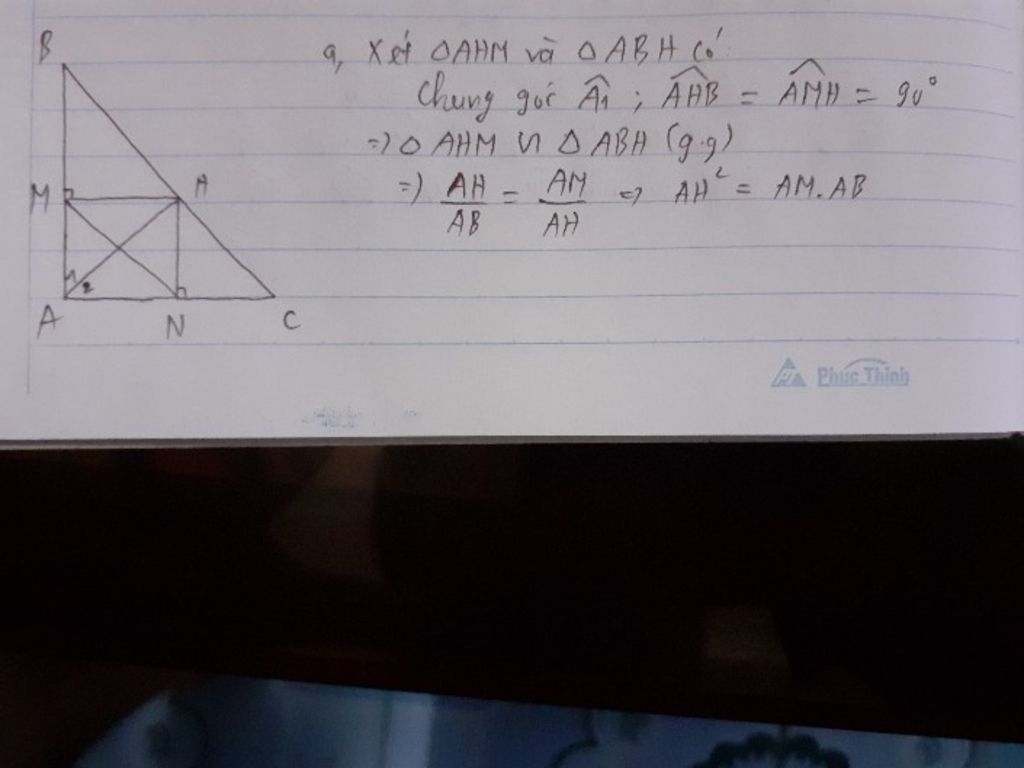 B
M
H
A
2
N
C
a, Xét △AHM và △ABH có
Chung góc Â1 ; AHB = AMH = 90°
=> △ AHM ∽ △ ABH (g.g)
=> AH/AB = AM/AH => AH² = AM.AB
Phuc Thinh